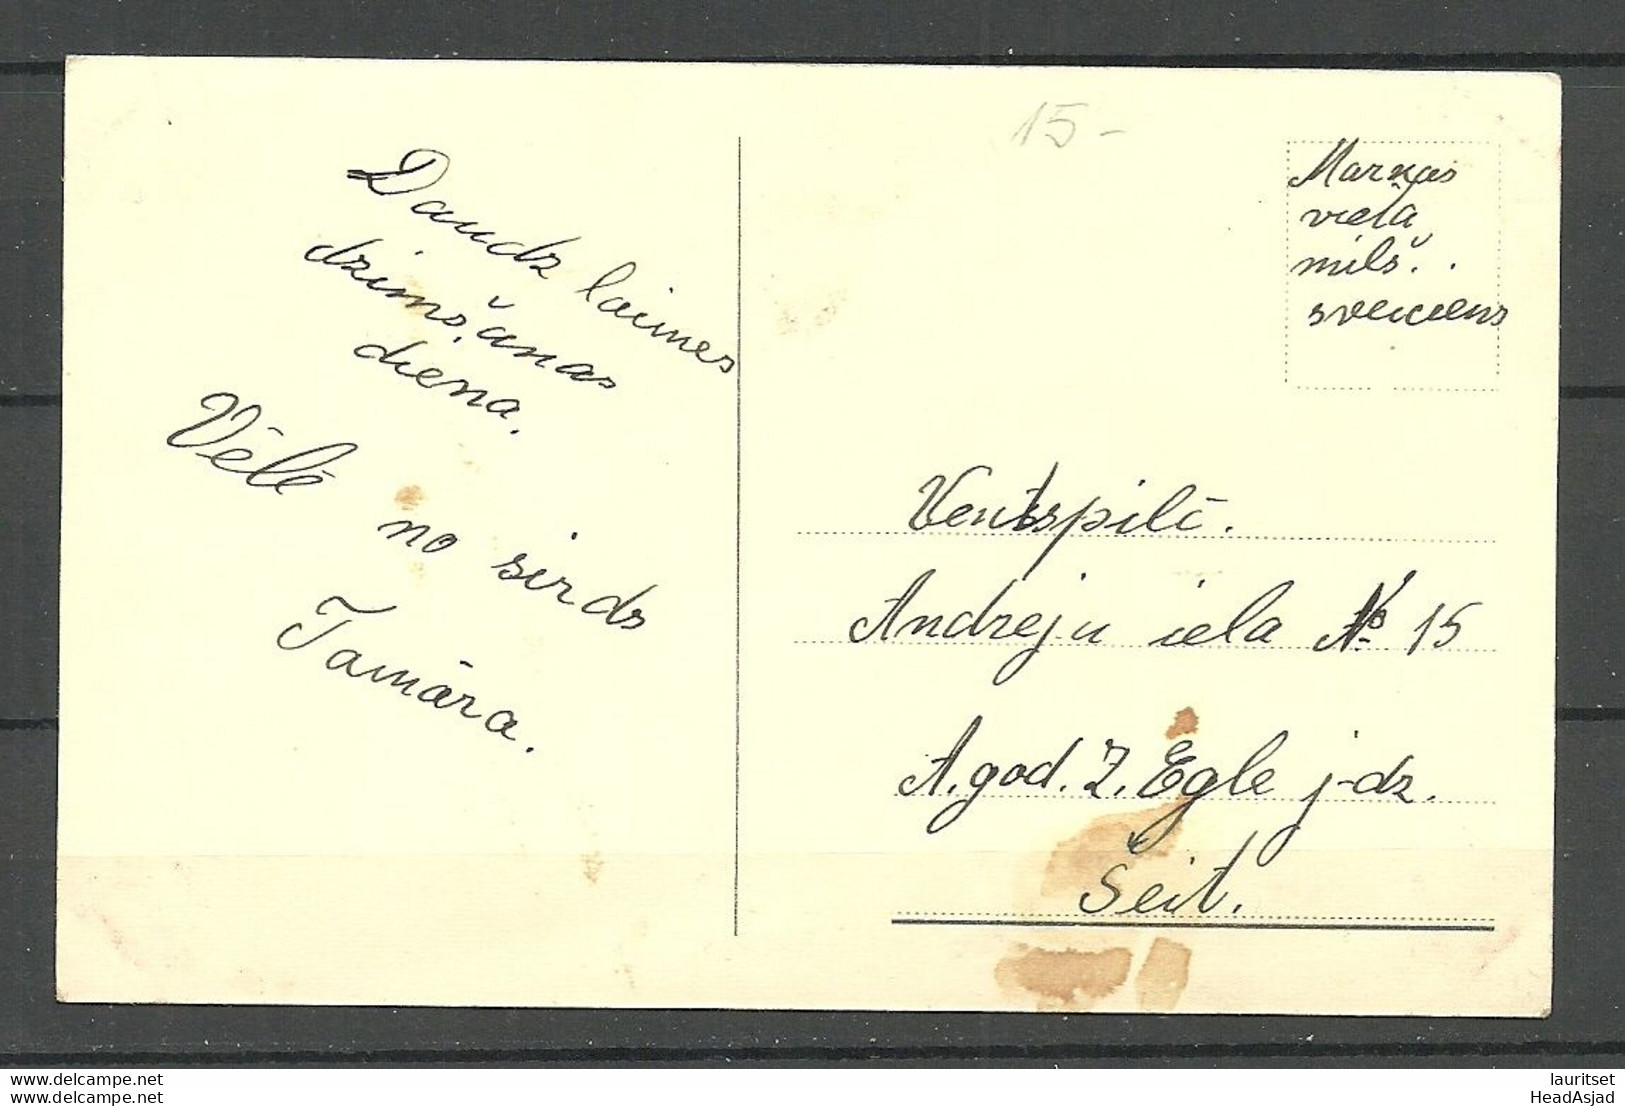 15-
Daudz laimes
dzimšanas
diena.
Vēlē
no sirds
Tamāra.
Markas
vietā
milš..
sveiciens
Ventspilī.
Andreju iela № 15
A. god. Z. Egle j-dz.
Šeit.
www.delcampe.net
www.delcampe.net
lauritset
HeadAsjad